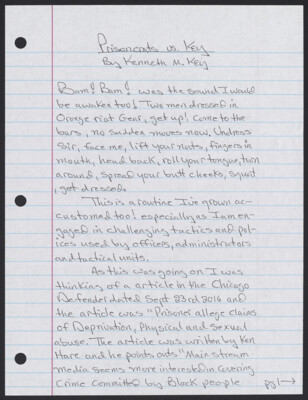 Prisoncrats vs. Key
By Kenneth M. Key
Bam! Bam! was the sound I would
be awaken too! Two men dressed in
Orange riot Gear, get up! Come to the
bars, no sudden moves now. Undress
Sir, face me, lift your nuts, fingers in
mouth, head back, roll your tongue, turn
around, spread your butt cheeks, squat
, get dressed.
This is a routine I've grown ac-
customed too! especially as I am en-
gaged in challenging tactics and pol-
ices used by officers, administrators
and tactical units.
As this was going on I was
thinking of a article in the Chicago
Defender dated Sept 23rd 2016 and
the article was "Prisoner allege claims
of Deprivation, Physical and Sexual
abuse. The article was written by Ken
Hare and he points out "Main stream
media seems more interested in covering
Crime Committed by Black people
pg1→